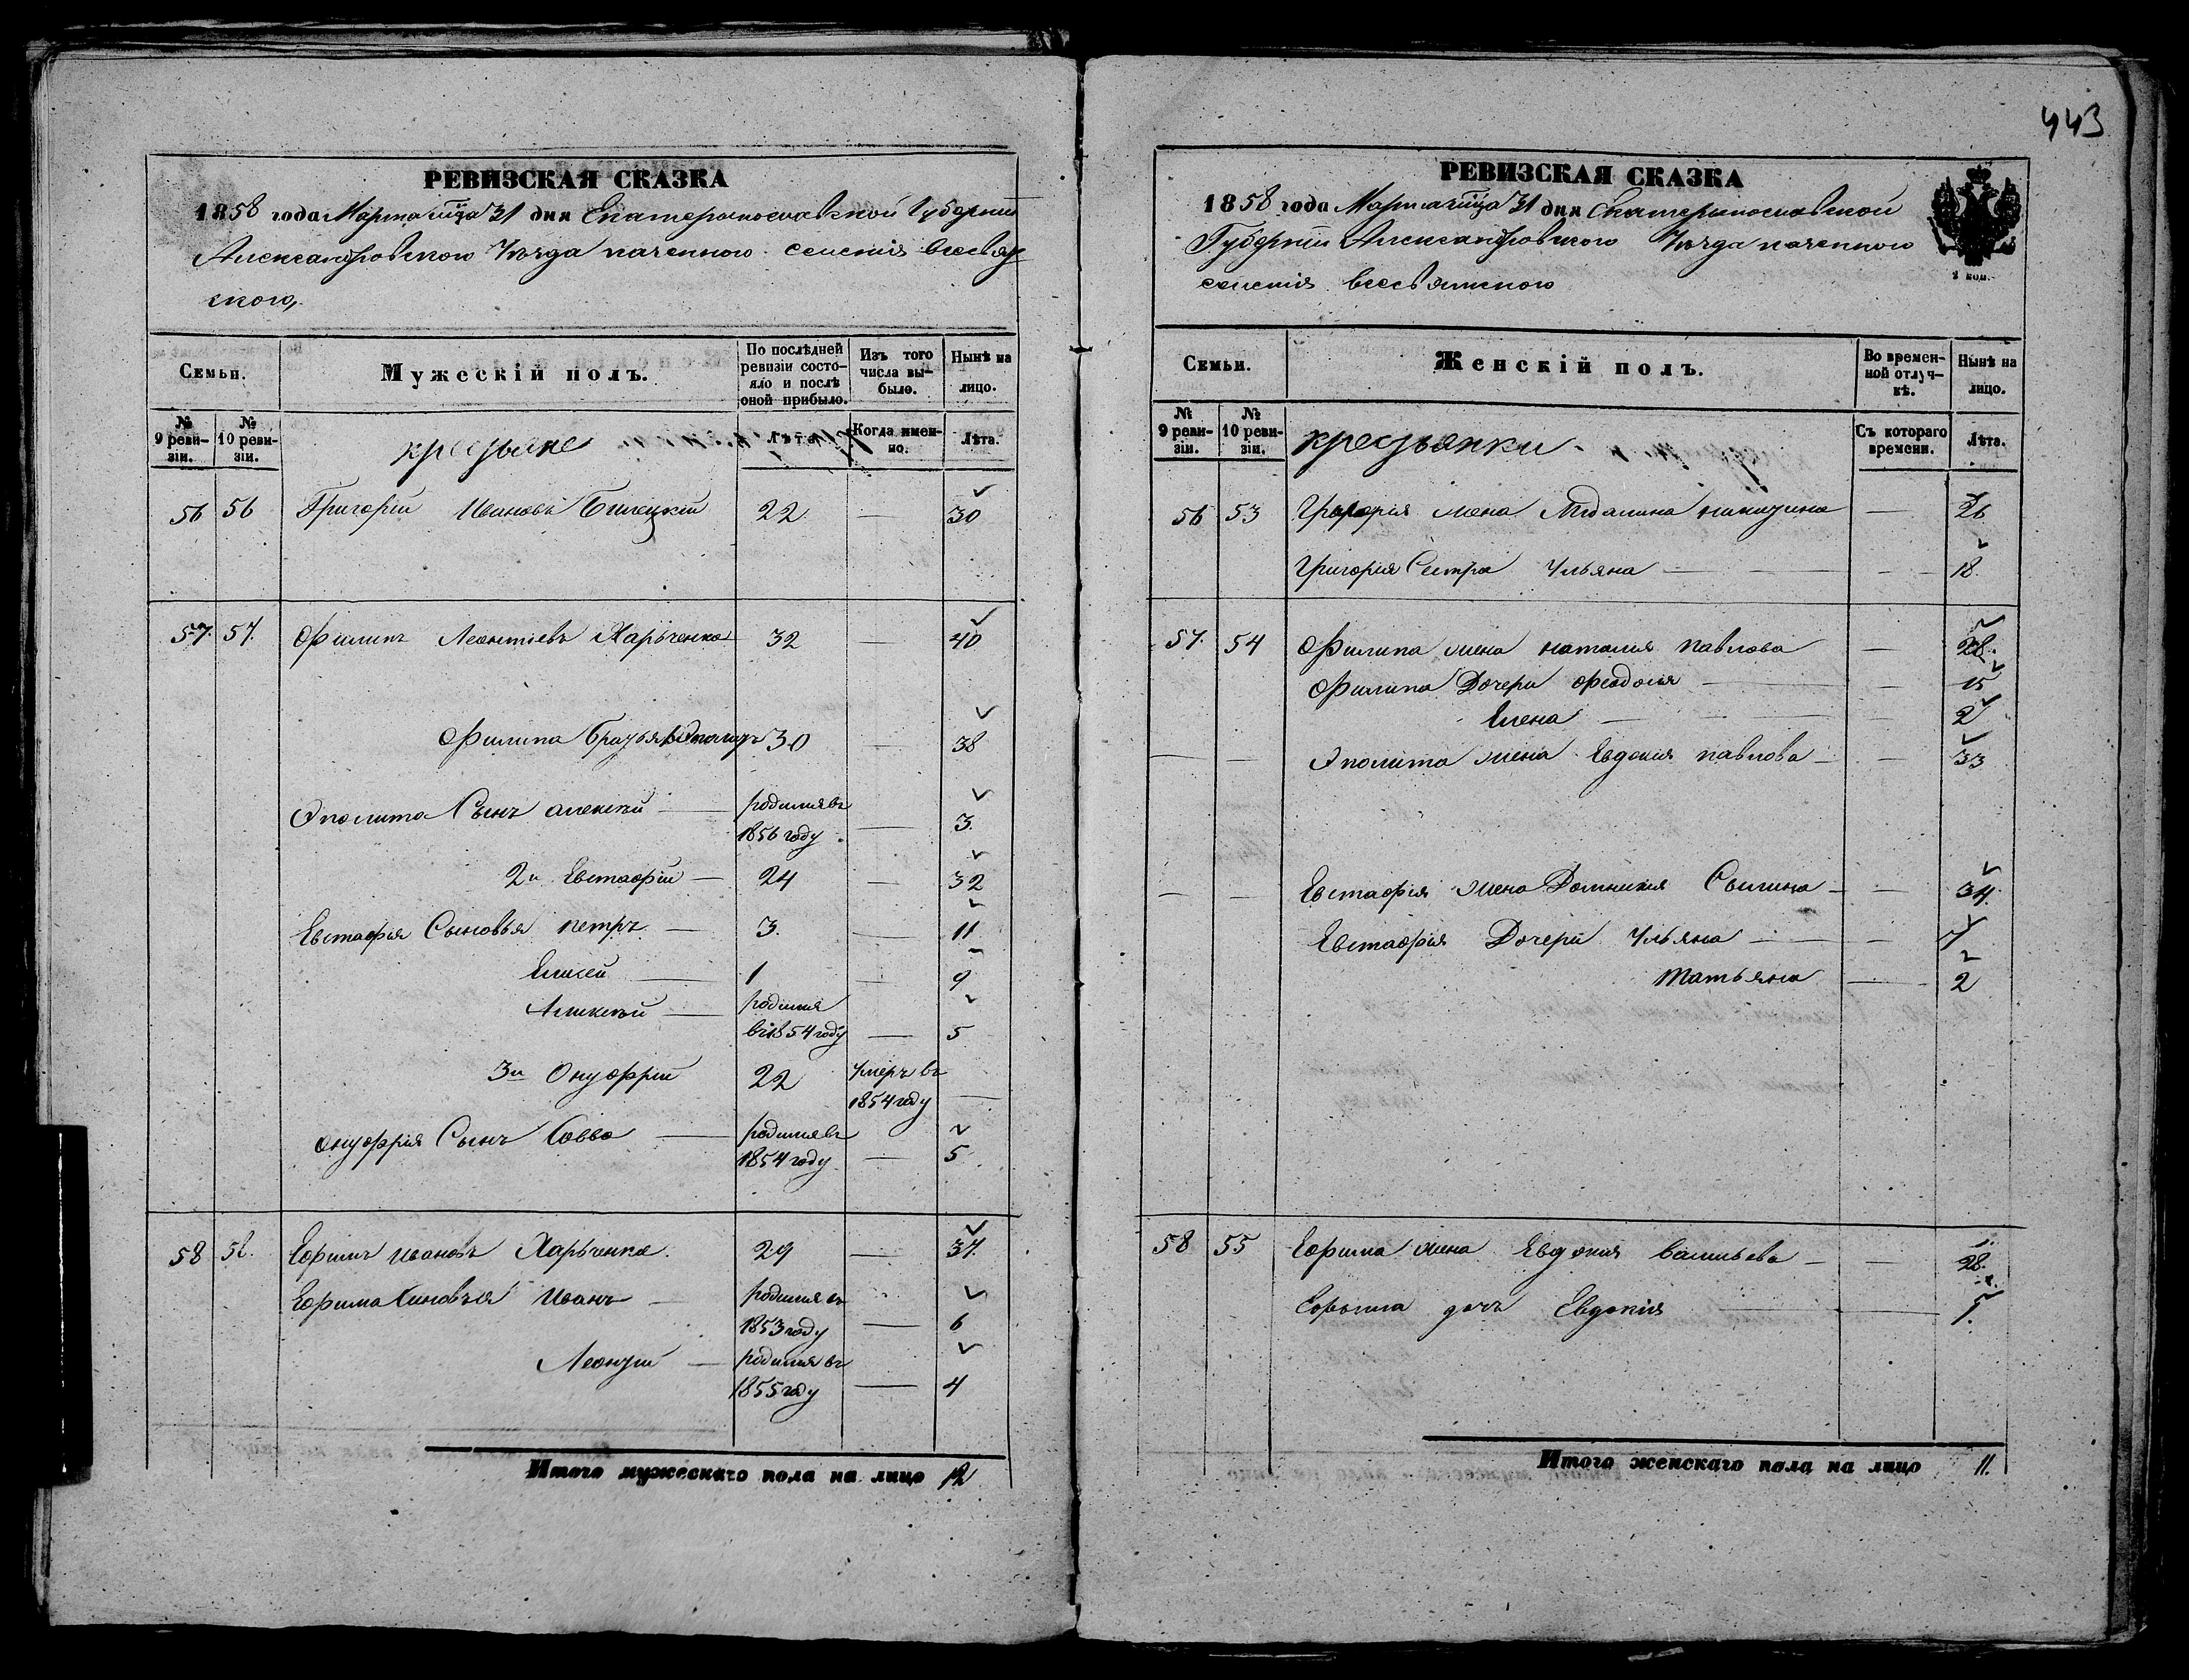 443
РЕВИЗСКАЯ СКАЗКА
1858 года Марта м͠ца 31 дня Екатеринославской Губернии
Александровского Уѣзда казенного селенія всесвят
ского,
Семьи.
Мужескій полъ.
По послѣдней ревизіи состояло и послѣ оной прибыло.
Изъ того числа выбыло.
Нынѣ на лицо.
№ 9 ревизіи.
№ 10 ревизіи.
крестьяне
Лѣта.
Когда именно.
Лѣта.
56 56 Григорій Ивановъ Билецкій 22 — 30
57. 57. Филипъ Леонтіевъ Харьченко 32 — 40
Филипа братья 30 — 38
Аполита Сынъ алексѣй — родился въ
1856 году — 3.
2й Евстафій — 24 — 32
Евстафія Сыновья петръ — 3. — 11
Елисей — 1 — 9
Алексѣй — родился
въ 1854 году — 5
3й Онуфрій 22 умеръ въ
1854 году —
онуфрія Сынъ Савва — родился въ
1854 году — 5
58 58. Ефимъ ивановъ Харьченко. 29 — 37.
Ефима Синовья Иванъ — родился въ
1853 году — 6
Леонтій — родился въ
1855 году — 4
Итого мужескаго пола на лицо 12
РЕВИЗСКАЯ СКАЗКА
1858 года Марта м͠ца 31 дня Екатеринославской
Губерніи Александровского Уѣзда казенного
селенія всесвятского
1 коп.
Семьи.
Женскій полъ.
Во временной отлучкѣ.
Нынѣ на лицо.
№ 9 ревизіи.
№ 10 ревизіи.
крестьянки
Съ котораго времени.
Лѣта.
56 53 Григорія жена никитина — 26
Григорія Сестра Ульяна — — 18.
57. 54 Филипа жена наталия павлова — 28.
Филипа Дочери феодосія — — 15
Елена — — 2
— — Аполита жена Евдокия павлова — — 33
— — Евстафія жена Домникия — — 34.
Евстафія Дочери Ульяна — — 7
Татьяна — 2
58 55 Ефима жена Евдокия васильева — — 28.
Ефима дочь Евдокія — 1.
Итого женскаго пола на лицо 11.